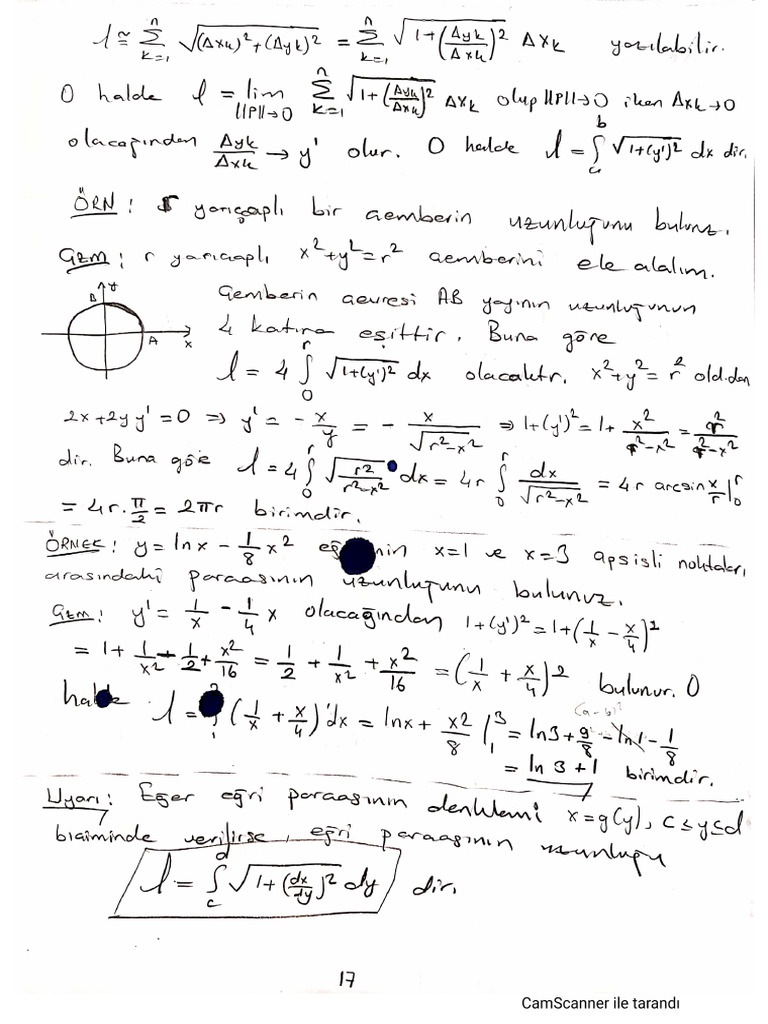 l ≅ Σ_{k=1}^{n} √((Δxk)²+(Δyk)²) = Σ_{k=1}^{n} √(1+(Δyk/Δxk)²) Δxk yazılabilir.
O halde l = lim_{||P||→0} Σ_{k=1}^{n} √(1+(Δyk/Δxk)²) Δxk olup ||P||→0 iken Δxk→0
olacağından Δyk/Δxk → y' olur. O halde l = ∫_a^b √(1+(y')²) dx dir.
ÖRN: r yarıçaplı bir çemberin uzunluğunu bulunuz.
Çzm: r yarıçaplı x²+y²=r² çemberini ele alalım.
B y A x
Çemberin çevresi AB yayının uzunluğunun
4 katına eşittir. Buna göre
l = 4 ∫_0^r √(1+(y')²) dx olacaktır. x²+y²=r² old.dan
2x+2yy'=0 ⇒ y' = -x/y = -x/√(r²-x²) ⇒ 1+(y')² = 1+ x²/(r²-x²) = r²/(r²-x²)
dir. Buna göre l = 4 ∫_0^r √(r²/(r²-x²)) dx = 4r ∫_0^r dx/√(r²-x²) = 4r arcsin x/r |_0^r
= 4r.π/2 = 2πr birimdir.
ÖRNEK: y = lnx - 1/8 x² nin x=1 ve x=3 apsisli noktaları
arasındaki parçasının uzunluğunu bulunuz.
Çzm: y' = 1/x - 1/4 x olacağından 1+(y')² = 1+(1/x - x/4)²
= 1+ 1/x² - 1/2 + x²/16 = 1/2 + 1/x² + x²/16 = (1/x + x/4)² bulunur. O
(a-b)²
l = ∫_1 (1/x + x/4) dx = lnx + x²/8 |_1^3 = ln3 + 9/8 - ln1 - 1/8
= ln3+1 birimdir.
Uyarı: Eğer eğri parçasının denklemi x=g(y), c≤y≤d
biçiminde verilirse, eğri parçasının uzunluğu
l = ∫_c^d √(1+(dx/dy)²) dy dir.
17
CamScanner ile tarandı